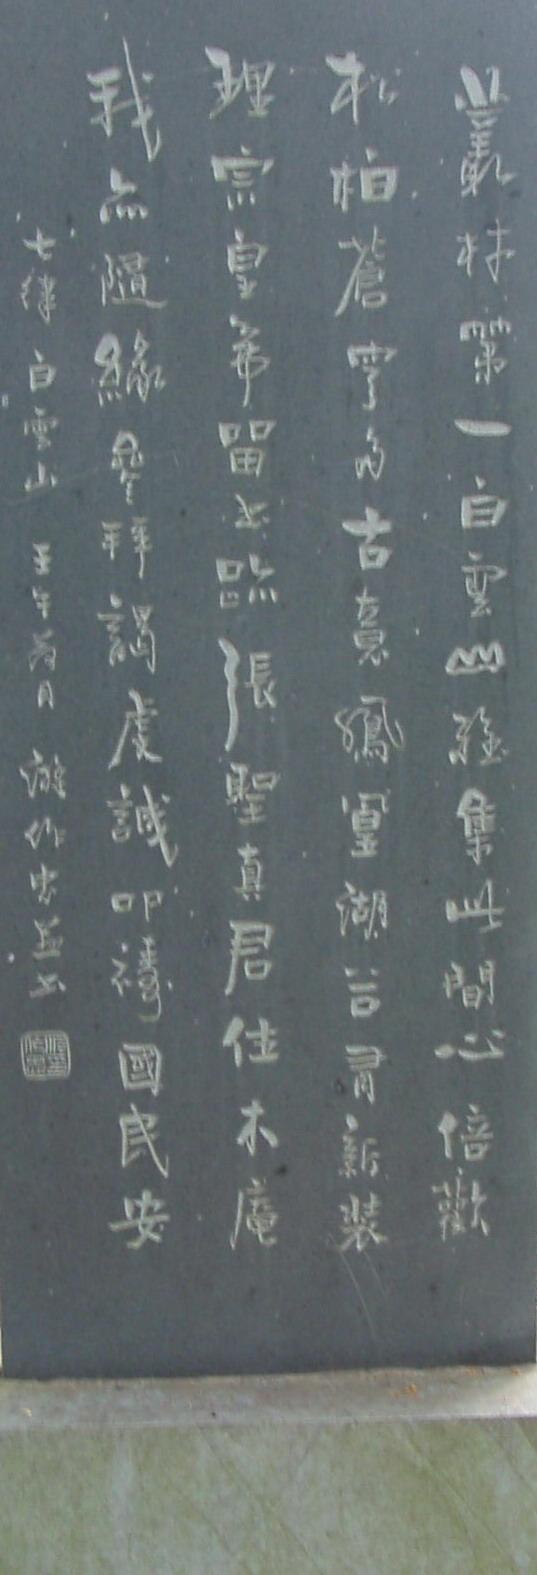 叢林第一白雲山雅集此間心倍歡
松柏蒼穹多古意鳳凰湖谷有新裝
理宗皇帝留書臨張聖真君住木庵
我亦隨緣參拜謁虔誠叩禱國民安
七律 白雲山 壬午 月 游作忠並書